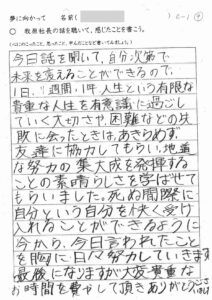 夢に向かって 名前( ) 2-1 ④
○ 我原社長の話を聴いて、感じたことを書こう。
今日話を聞いて、自分次第で
未来を変えることができるので、
1日、1週間、1年、人生という有限な
貴重な人生を有意識に過ごし
ていく大切さや、困難などの失
敗に会ったときは、あきらめず、
友達に協力してもらい、地道
な努力の集大成を発揮する
ことの素晴らしさを学ばせて
もらいました。死ぬ間際に
自分という自分を快く受け
入れることができるように
今から、今日言われたこと
を胸に日々努力していきます。
最後になりますが大変貴重な
お時間を費やして頂きありがとうござ